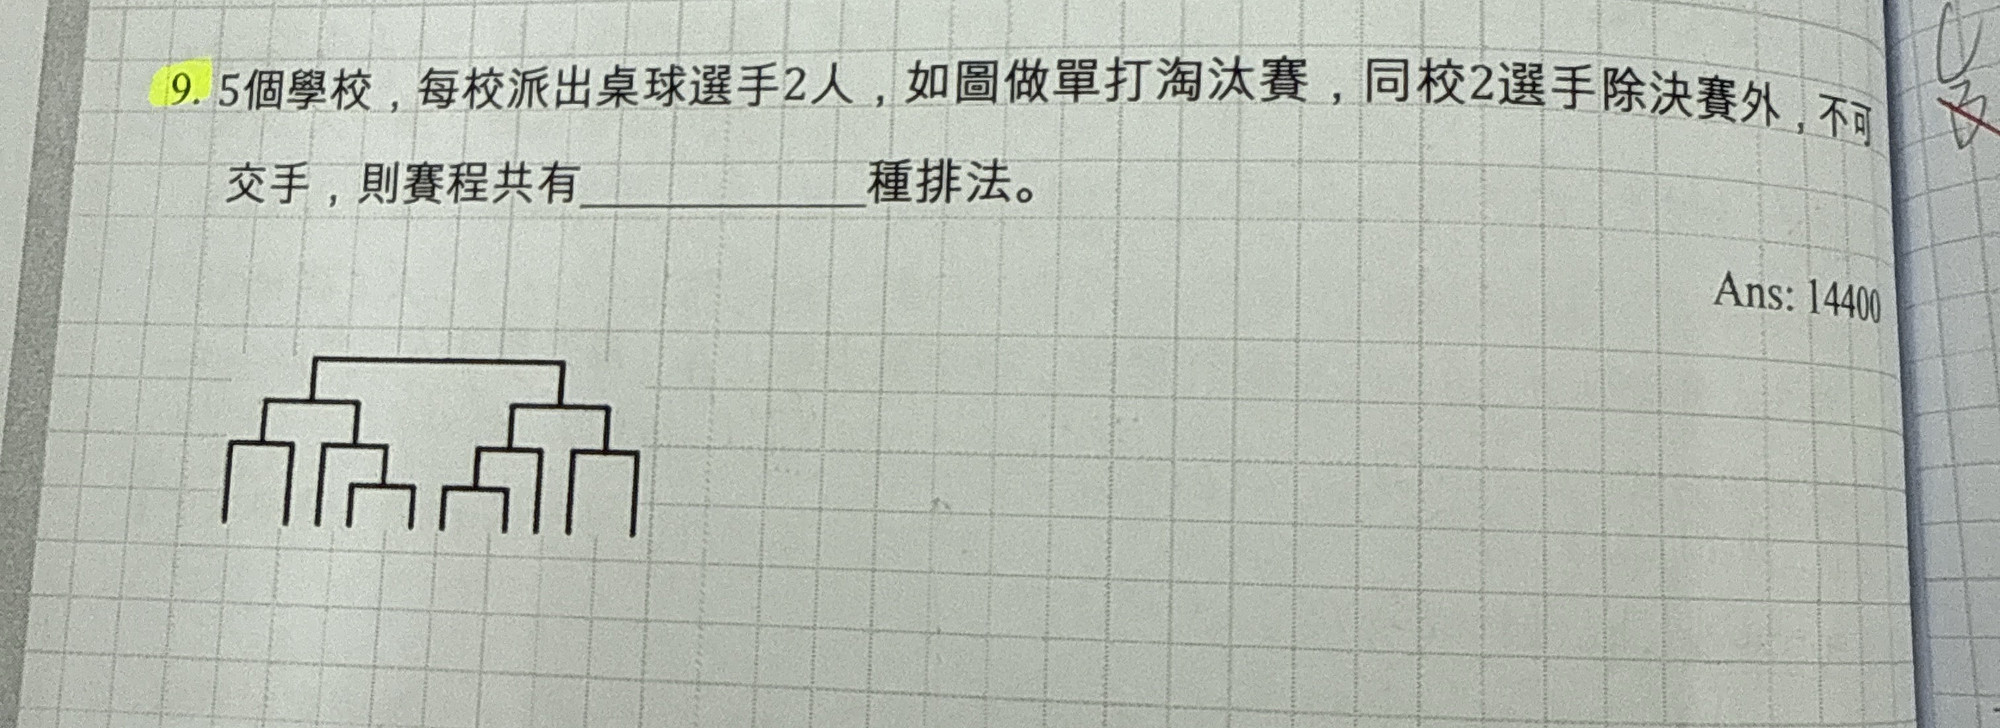 9. 5個學校，每校派出桌球選手2人，如圖做單打淘汰賽，同校2選手除決賽外，不可
交手，則賽程共有____________種排法。
Ans: 14400